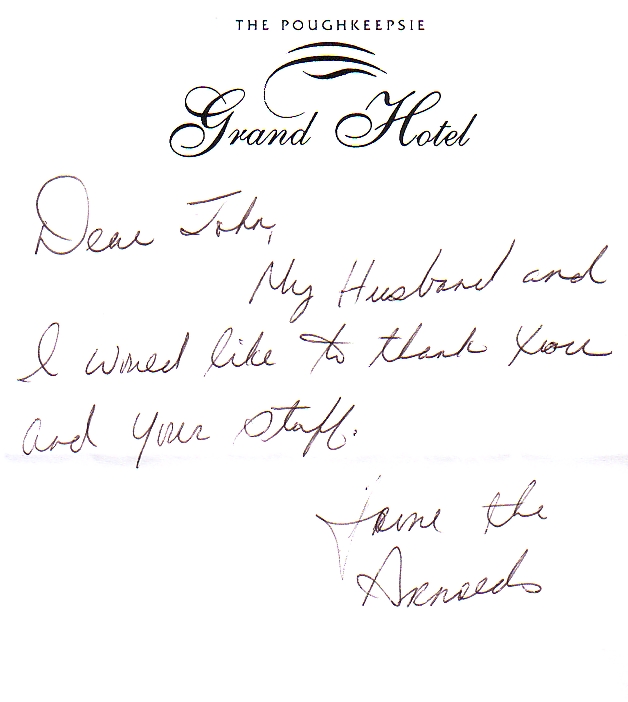 THE POUGHKEEPSIE
Grand Hotel
Dear John,
My Husband and
I would like to thank you
and your staff.
the